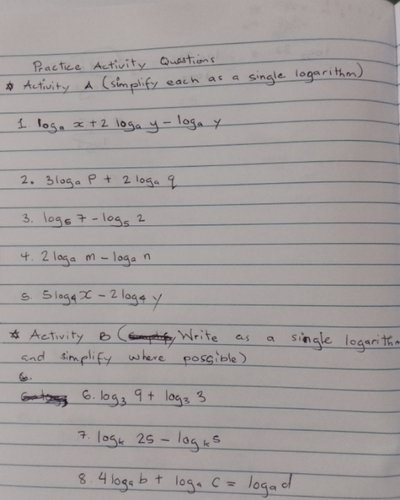 Practice Activity Questions
* Activity A (simplify each as a single logarithm)
1. logₐ x + 2 logₐ y - logₐ y
2. 3 logₐ P + 2 logₐ q
3. log₅ 7 - log₅ 2
4. 2 logₐ m - logₐ n
5. 5 log₄ x - 2 log₄ y
* Activity B (Write as a single logarithm
and simplify where possible)
6.
6. log₃ 9 + log₃ 3
7. logₖ 25 - logₖ 5
8. 4 logₐ b + logₐ c = logₐ d